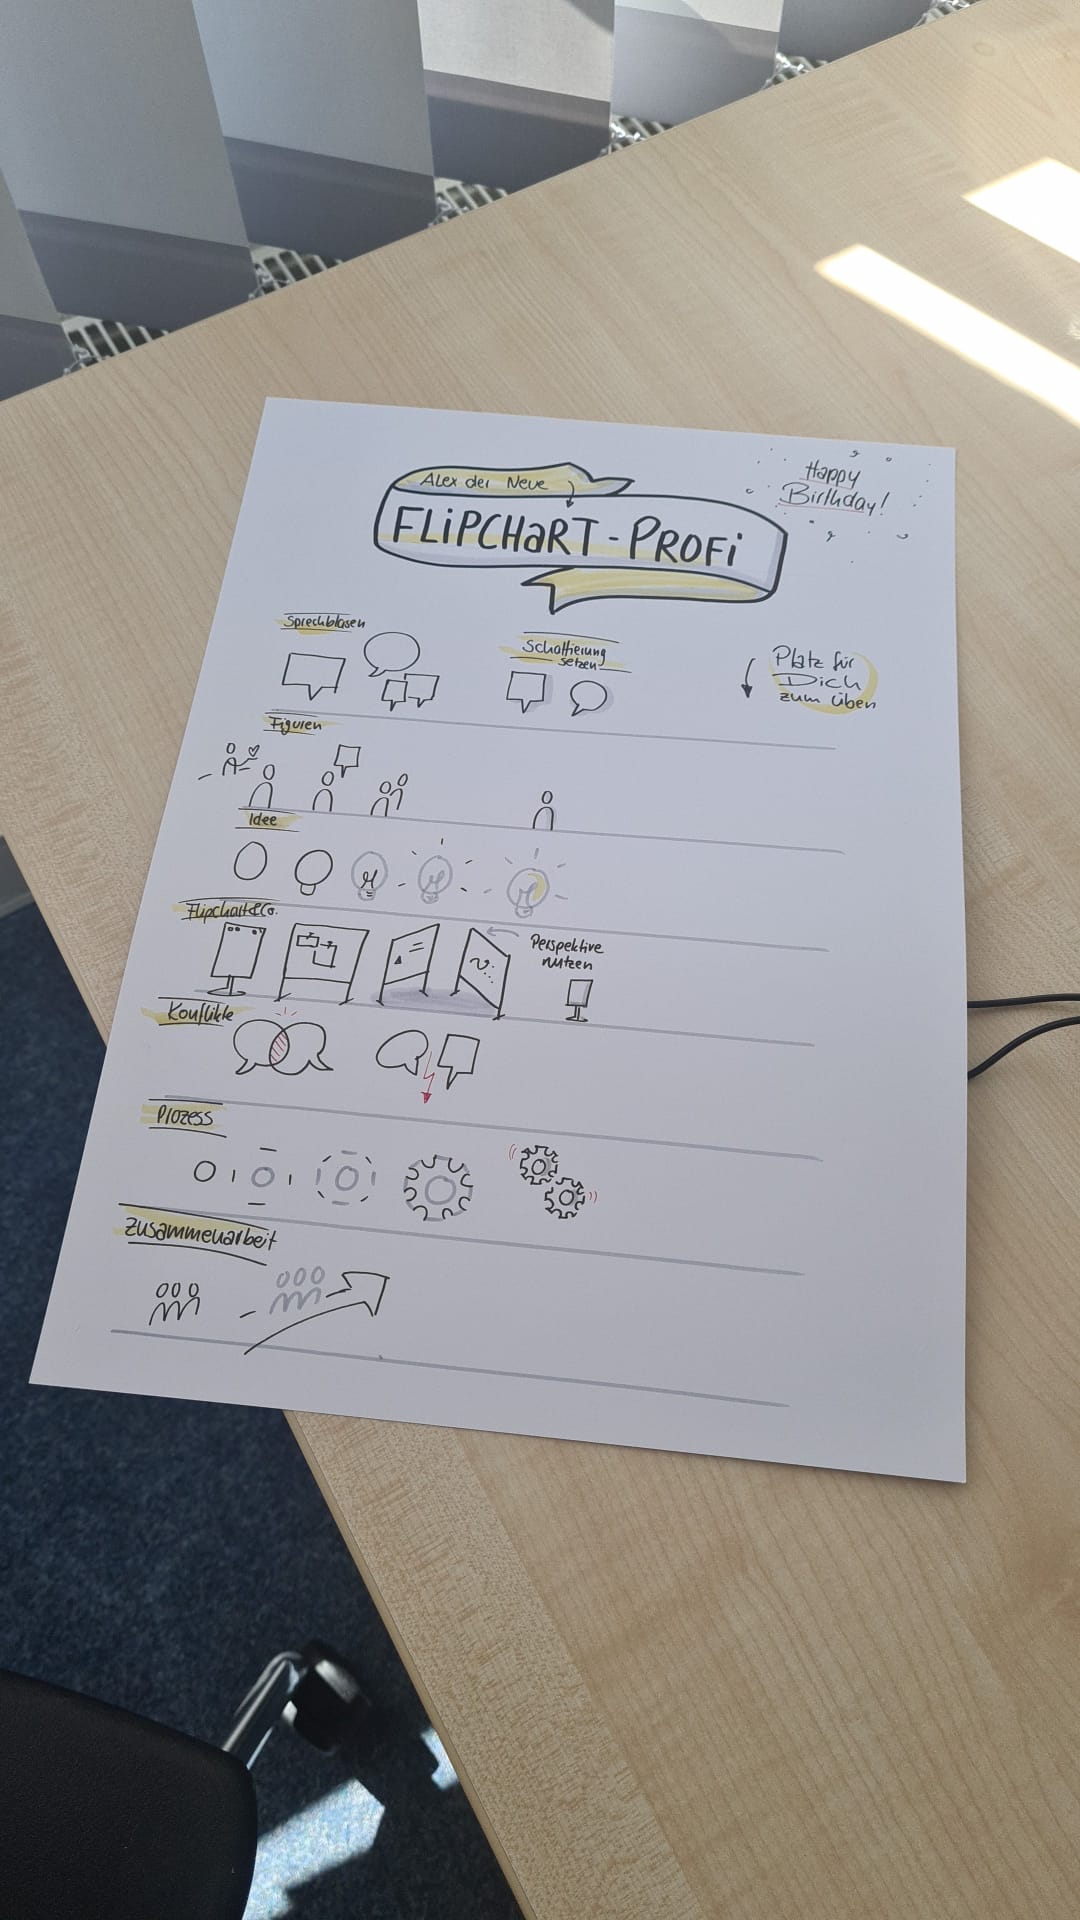 Happy
Birthday!
Alex der Neue
FLiPCHaRT-PROFi
Sprechblasen
Schattierung
setzen
Platz für
Dich
zum üben
Figuren
Idee
Flipchart&Co.
Perspektive
nutzen
Konflikte
Prozess
Zusammenarbeit